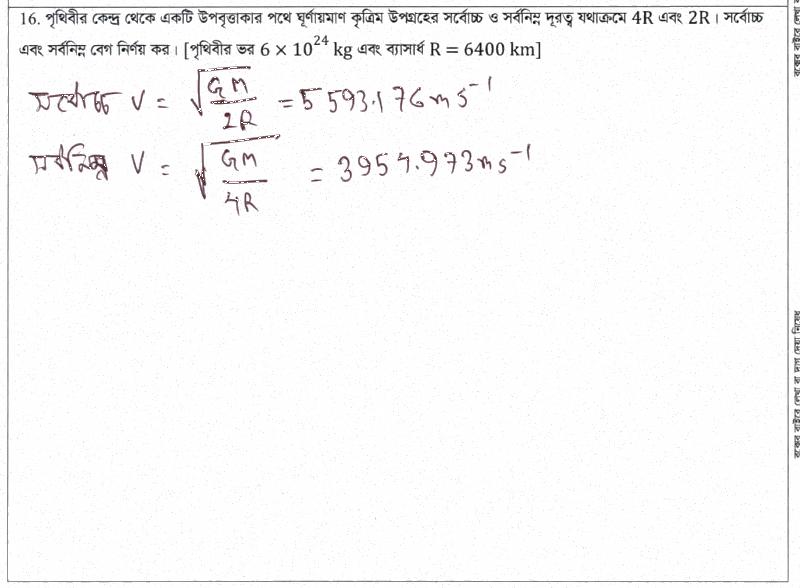 16. পৃথিবীর কেন্দ্র থেকে একটি উপবৃত্তাকার পথে ঘূর্ণায়মাণ কৃত্রিম উপগ্রহের সর্বোচ্চ ও সর্বনিম্ন দূরত্ব যথাক্রমে 4R এবং 2R। সর্বোচ্চ
এবং সর্বনিম্ন বেগ নির্ণয় কর। [পৃথিবীর ভর 6 × 10²⁴ kg এবং ব্যাসার্ধ R = 6400 km]
সর্বোচ্চ V = √(GM/2R) = 5593.176 ms⁻¹
সর্বনিম্ন V = √(GM/4R) = 3954.973 ms⁻¹